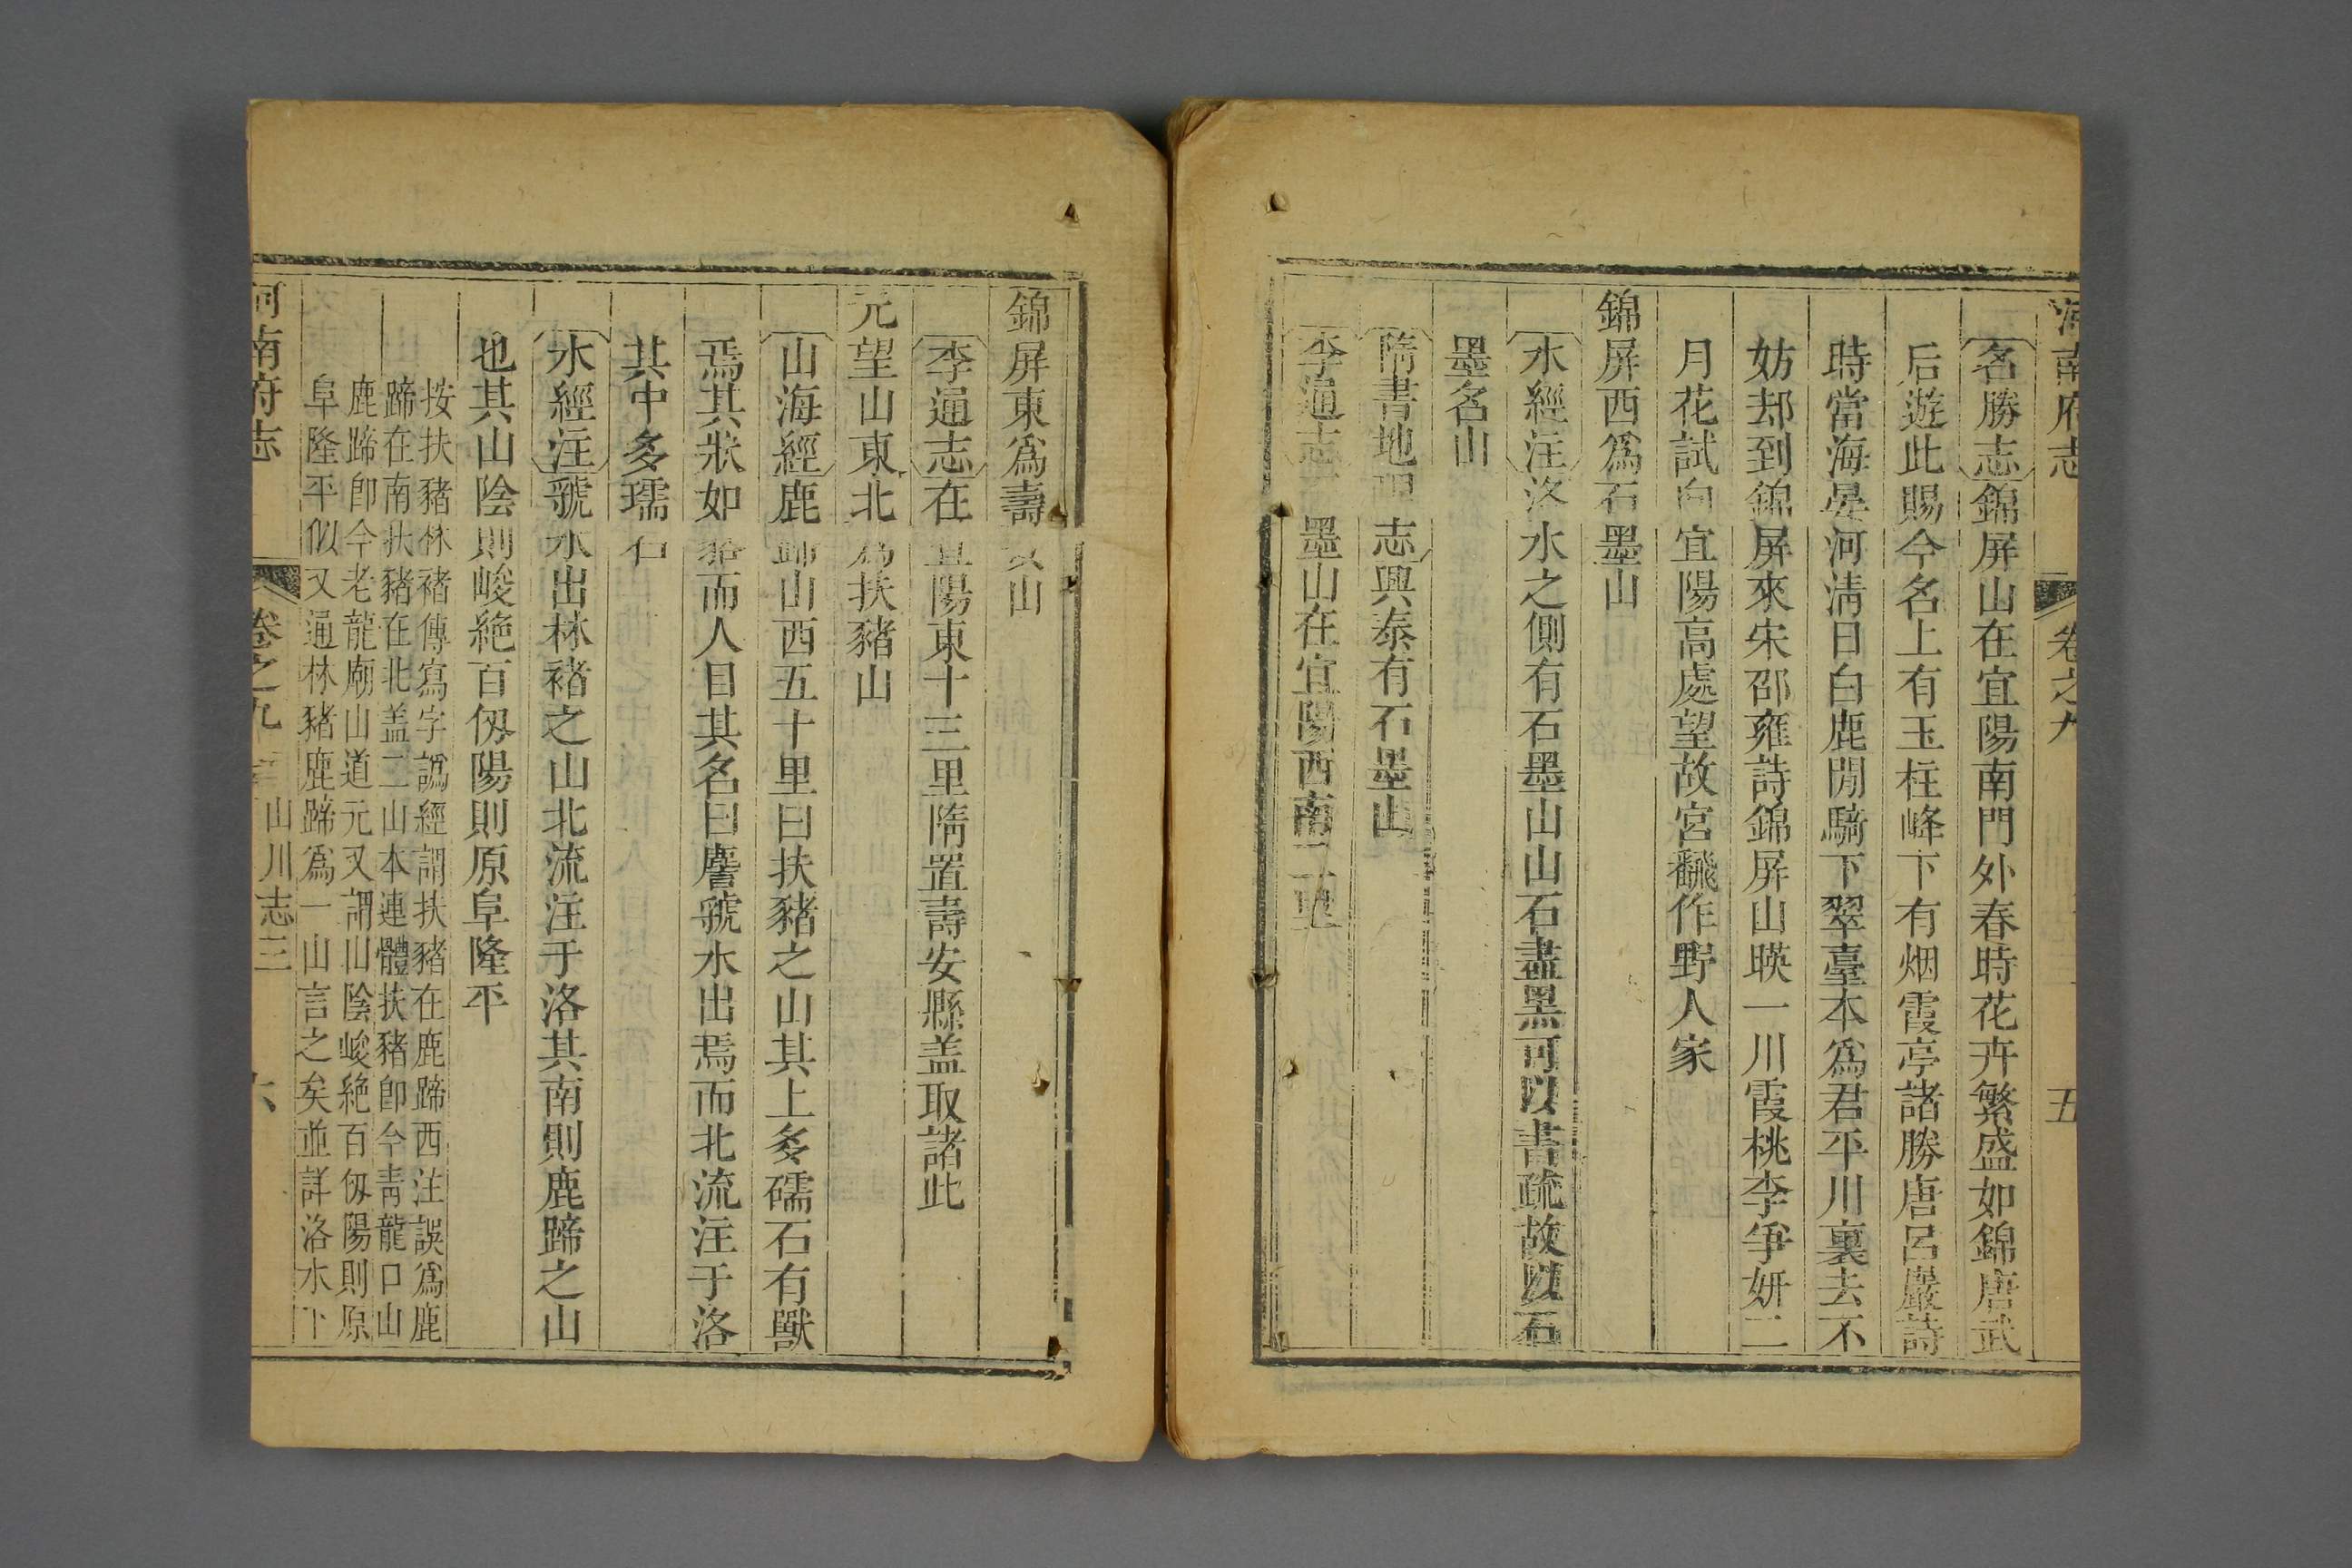 河南府志 卷之九 五
名勝志錦屏山在宜陽南門外春時花卉繁盛如錦唐武
后遊此賜今名上有玉柱峰下有烟霞亭諸勝唐呂巖詩
時當海晏河淸日白鹿閒騎下翠臺本爲君平川裏去不
妨却到錦屏來宋邵雍詩錦屏山暎一川霞桃李爭妍二
月花試向宜陽高處望故宮飜作野人家
錦屏西爲石墨山
水經注洛水之側有石墨山山石盡黑可以書疏故以石
墨名山
隋書地理志興泰有石墨山
李通志 墨山在宜陽西南二里
錦屏東爲壽安山
李通志在宜陽東十三里隋置壽安縣盖取諸此
元望山東北爲扶豬山
山海經鹿蹄山西五十里曰扶豬之山其上多礝石有獸
焉其狀如貉而人目其名曰䴦虢水出焉而北流注于洛
其中多瓀石
水經注虢水出林褚之山北流注于洛其南則鹿蹄之山
也其山陰則峻絶百仭陽則原阜隆平
按扶豬林褚傳寫字譌經謂扶豬在鹿蹄西注誤爲鹿
蹄在南扶豬在北盖二山本連體扶豬卽今靑龍口山
鹿蹄卽今老龍廟山道元又謂山陰峻絶百仭陽則原
阜隆平似又通林豬鹿蹄爲一山言之矣並詳洛水下
河南府志 卷之九 山川志三 六